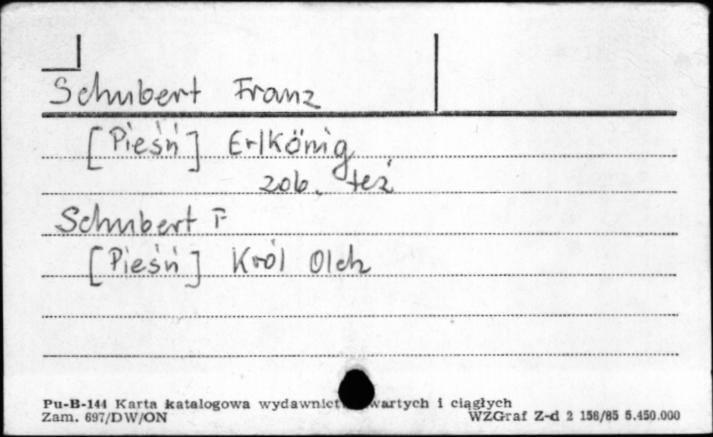 Schubert Franz
[Pieśń] Erlkönig
zob. też
Schubert F
[Pieśń] Król Olch
Pu-B-144 Karta katalogowa wydawnict wartych i ciągłych
Zam. 697/DW/ON WZGraf Z-d 2 158/85 5.450.000